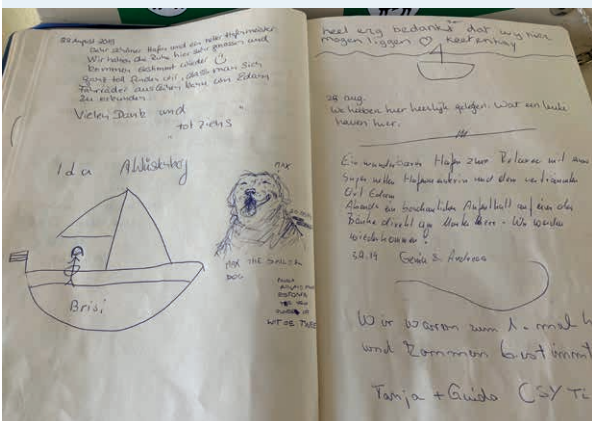 28 August 2019
Sehr schöner Hafen und ein netter Hafenmeister
Wir haben die Ruhe hier sehr genossen und
kommen bestimmt wieder
Ganz toll finden wir, dass man sich
Fahrräder ausleihen kann um Edam
zu erkunden
Vielen Dank und
tot ziens
Ida
Brisi
MAX
MAX THE SMILEN
DOG
heel erg bedankt dat wij hier
mogen liggen. ♡
28 aug.
We hebben hier heerlijk gelegen. Wat een leuke
haven hier.
Ein wunderbarer Hafen zum Relaxen mit einer
super netten Hafenmeisterin und dem verträumten
Ort Edam
Abends ein beschaulicher Aufenthalt auf einer der
Bänke direkt am - Wir werden
wiederkommen!
3.9.19 & Andreas
Wir waren zum 1. mal h
und kommen bestimmt
Tanja + Guido (SY Ti